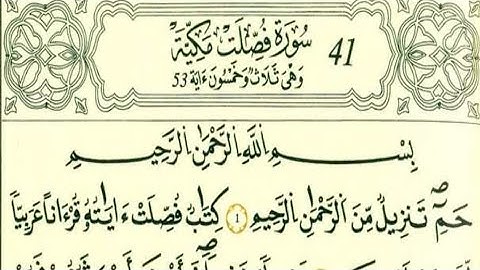 سُورَةُ فُصِّلَتْ مَكِّيَّة 41
وَهْىَ ثَلَاثٌ وَخَمْسُونَ ءَايَة 53
بِسْمِ اللَّهِ الرَّحْمَٰنِ الرَّحِيمِ
حَمِٓ تَنزِيلٌ مِّنَ اَلرَّحْمَٰنِ اِلرَّحِيمِ 1 كِتَٰبٌ فُصِّلَتَ ءَايَٰتُهُۥ قُرْءَاناً عَرَبِيّاً